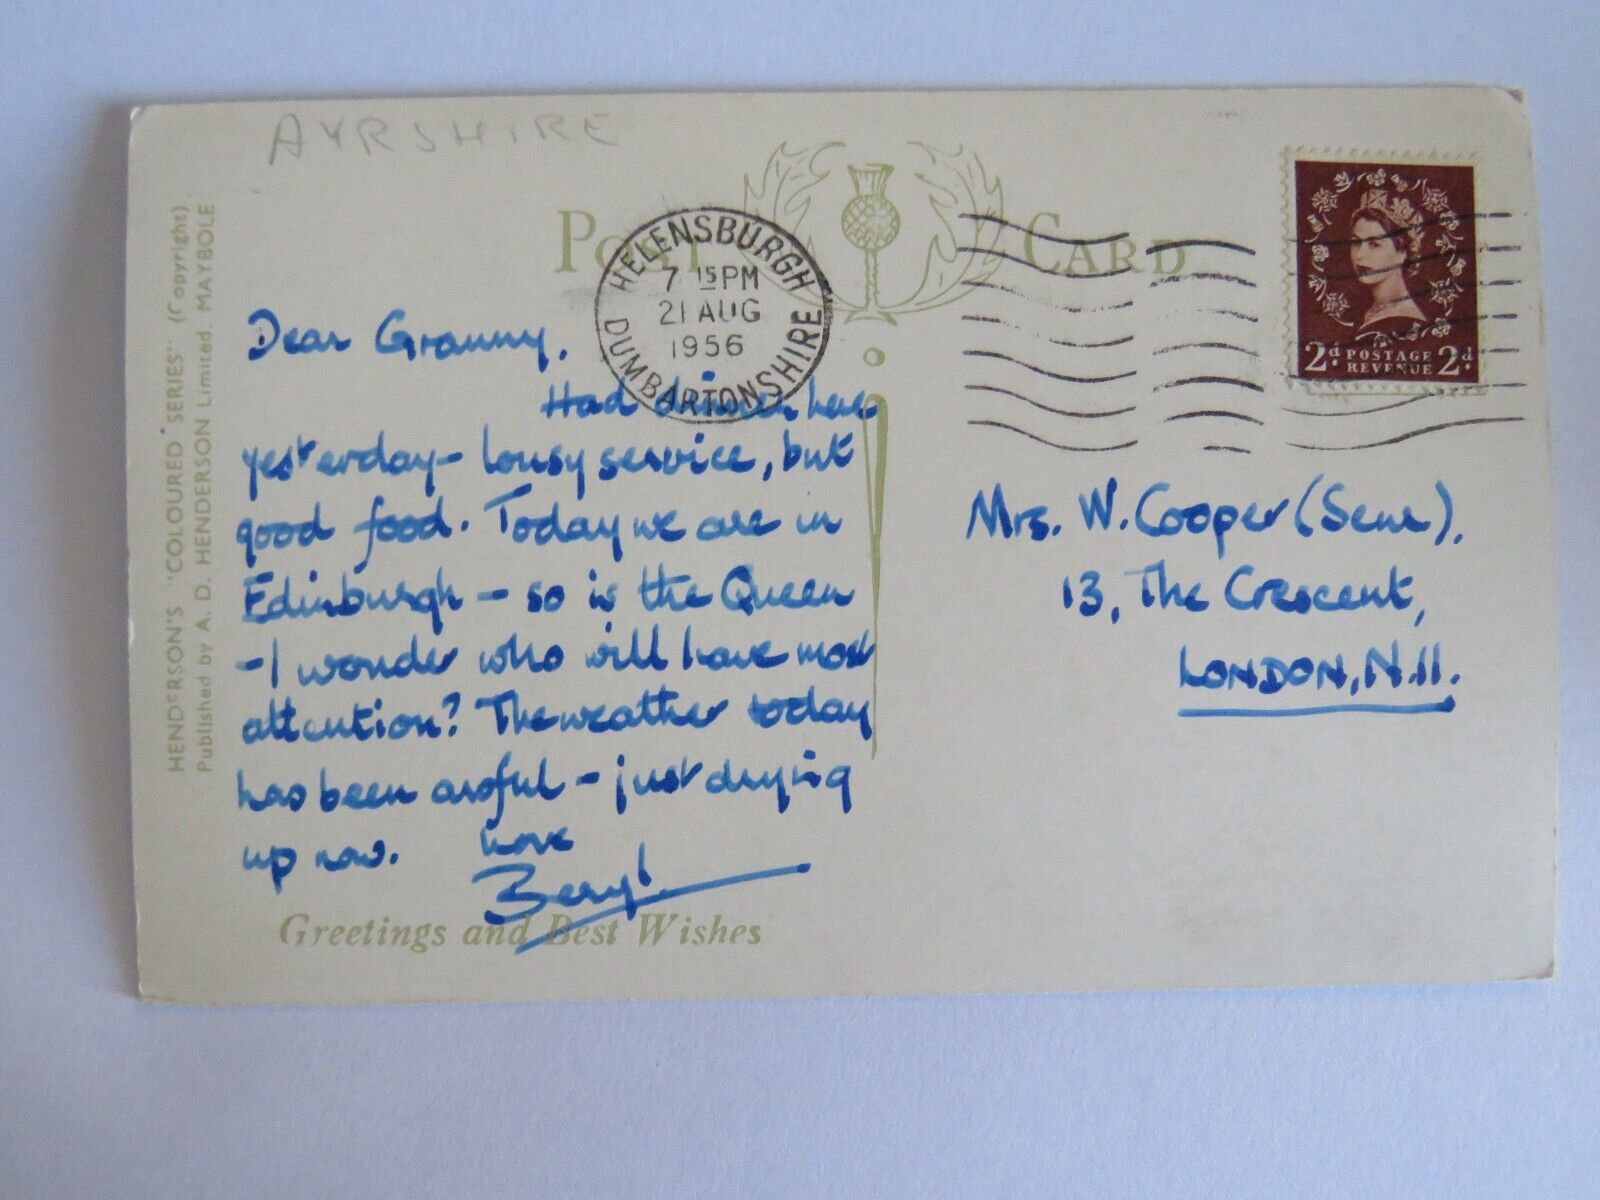 AYRSHIRE
POST CARD
HELENSBURGH
7 15 PM
21 AUG
1956
DUMBARTONSHIRE
2d POSTAGE 2d
REVENUE
HENDERSON'S "COLOURED SERIES" (Copyright)
Published by A. D. HENDERSON Limited. MAYBOLE
Dear Granny,
Had dinner here
yesterday - lousy service, but
good food. Today we are in
Edinburgh - so is the Queen
- I wonder who will have most
attention? The weather today
has been awful - just drying
up now. Love
Beryl
Greetings and Best Wishes
Mrs. W. Cooper (Senr),
13, The Crescent,
LONDON, N.11.